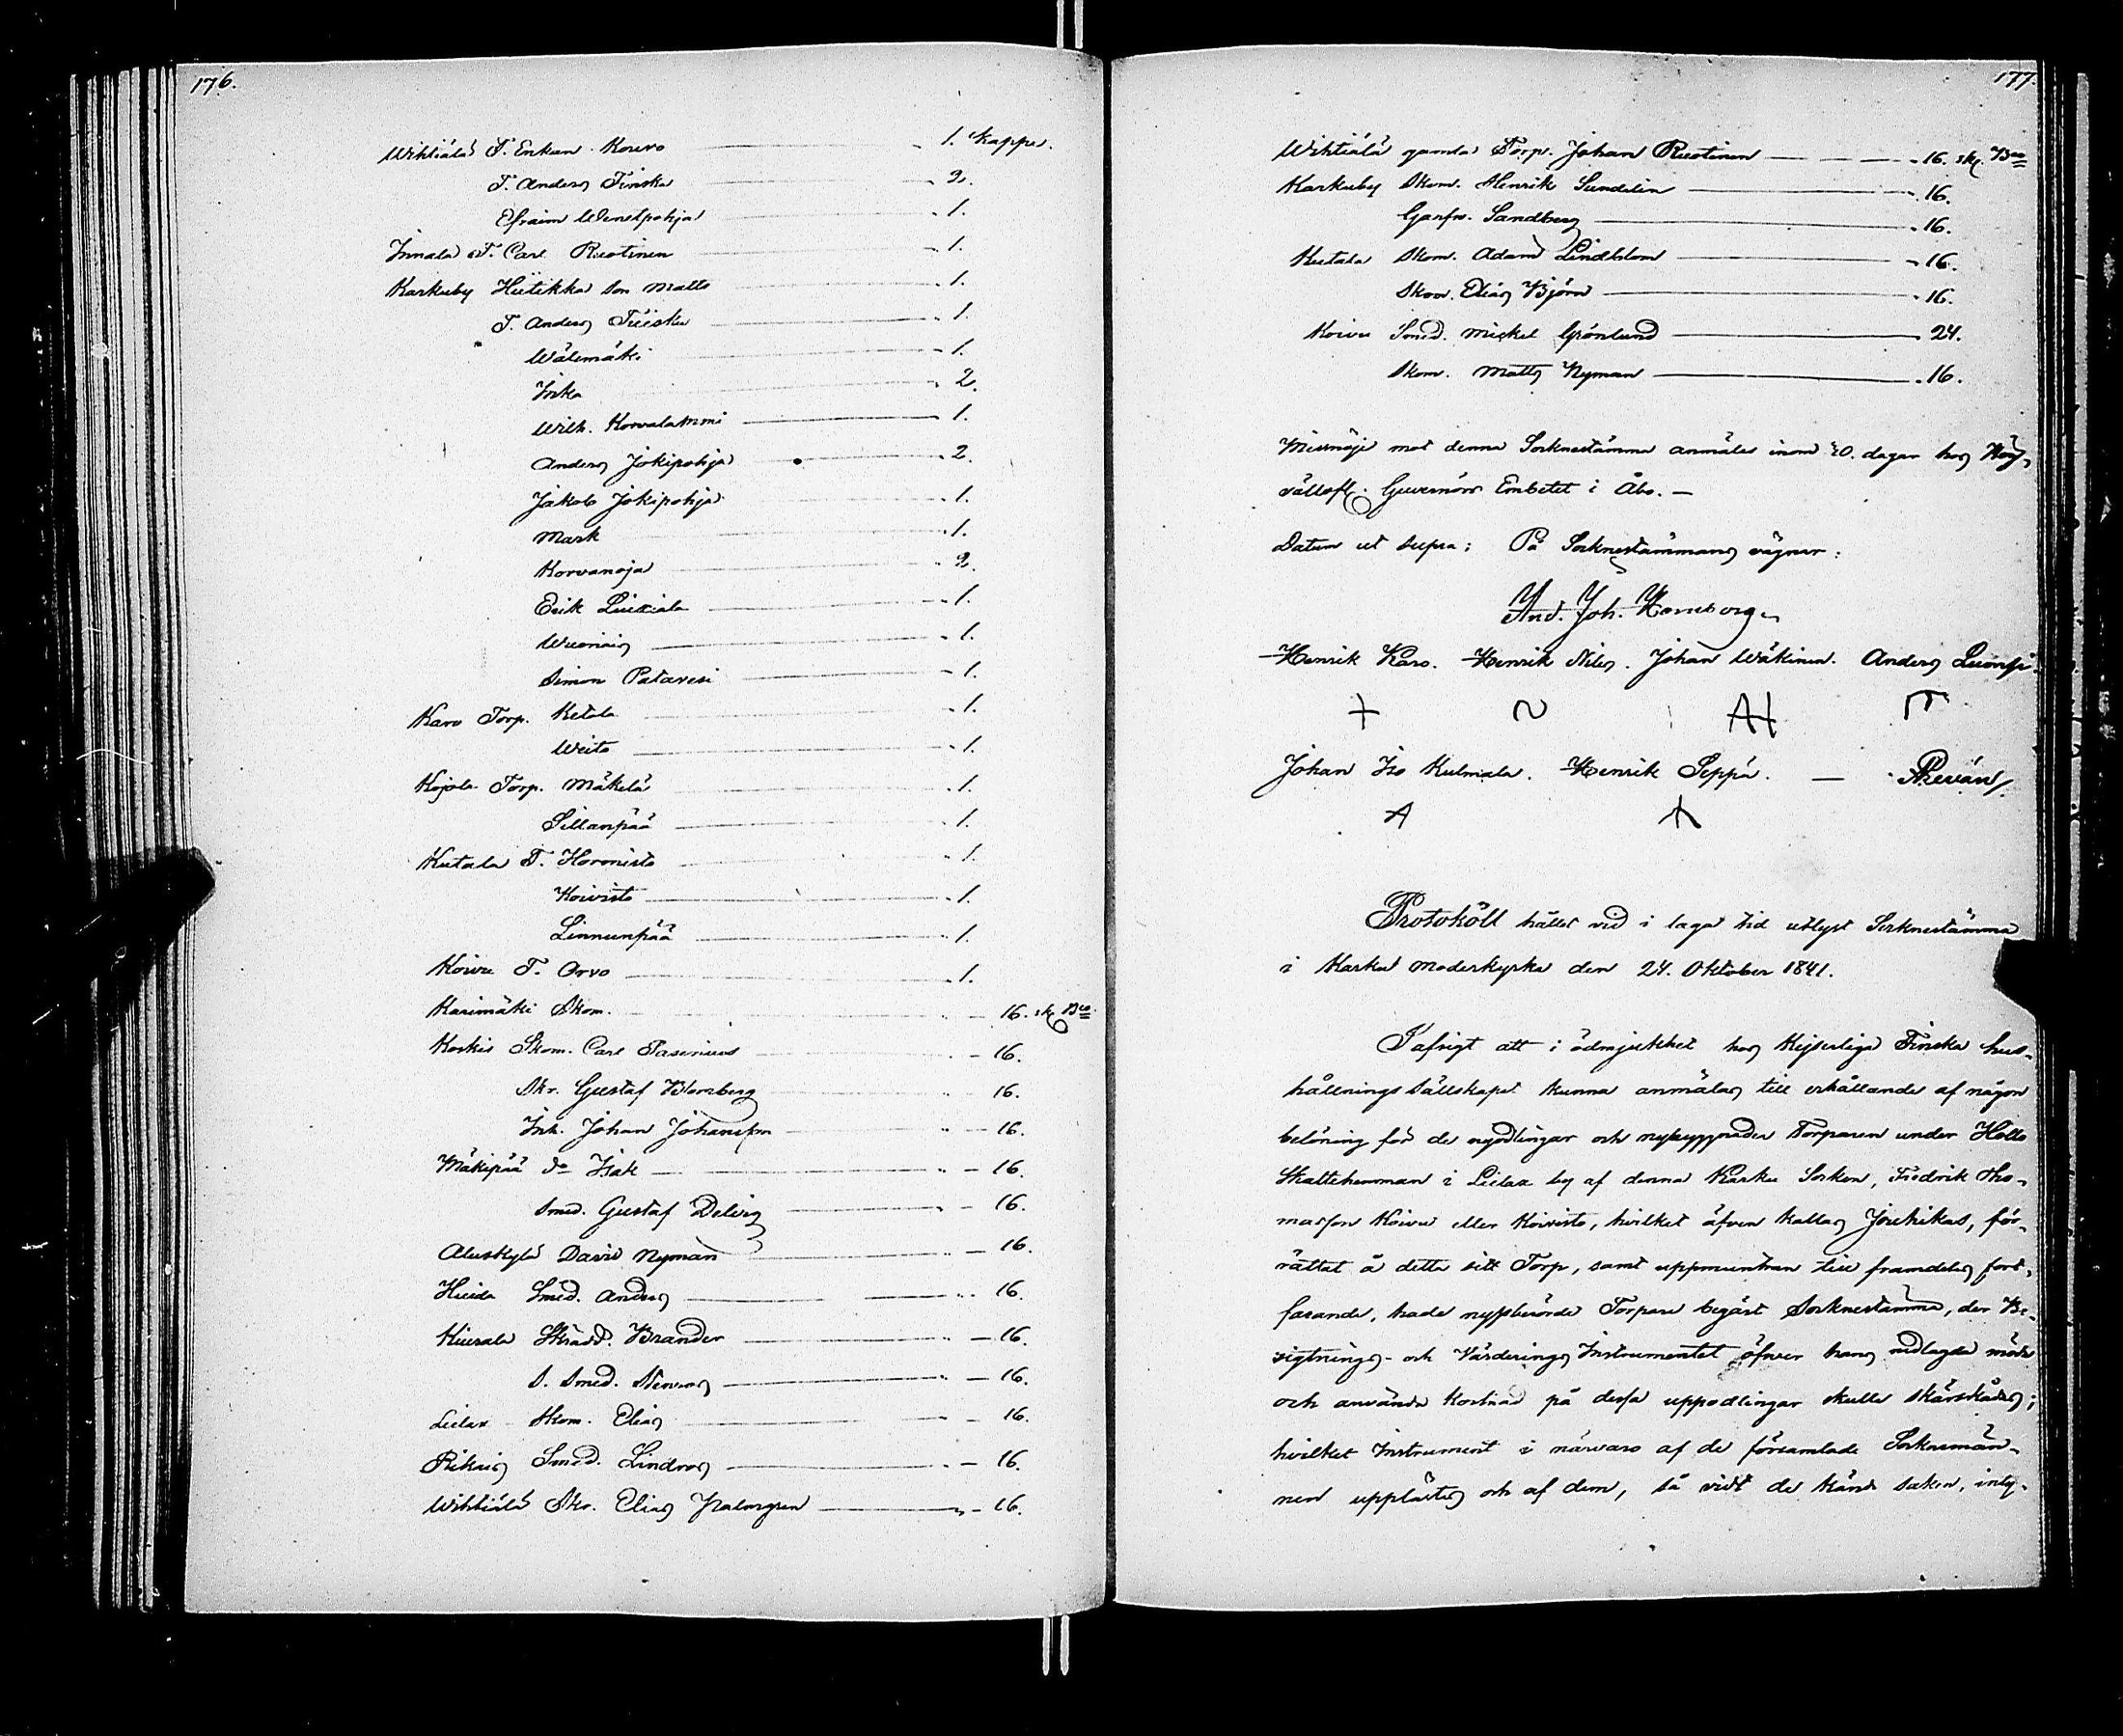 176.
Wihtiälä T. Enkun Kouvo 1. kappe.
T. Anders Finska 2.
Efraim Wenelpohja 1.
Innala T. Carl Ruotinen 1.
Karkuby Hiitikka son Matts 1.
T. Anders 1.
Wälimäki 1.
Inka 2.
Wilh. Korvalammi 1.
Anders Jokipohja 2.
Jakob Jokipohja 1.
Mark 1.
Korvanoja 2.
Erik 1.
1.
Simon Patavesi 1.
Karo Torp. Ketola 1.
Weito 1.
Kojola Torp. Mäkelä 1.
Sillanpää 1.
Kutala T. Horonisto 1.
Koivisto 1.
Linnunpää 1.
Koivu T. Orvo 1.
Karimäki Skom. 16. sk. Bco.
Koskis Skom. Carl 16.
Skr. Gustaf Blomberg 16.
Inh. Johan Johansson 16.
Mäkipää do Isak 16.
Smed. Gustaf Delvig 16.
Aluskylä David Nyman 16.
Heida Smed. Anders 16.
Kiurala Skrädd. Brander 16.
S. Smed. 16.
Lielax Skom. Elias 16.
Rikais Smed. Lindros 16.
Wihtiälä Skr. Elias Palmgren 16.
177.
Wihtiälä gamla Torp. Johan Ruotinen 16. sk. Bco
Karkuby Skom. Henrik Sundelin 16.
Garfv. Sandberg 16.
Kutala Skom. Adam Lindblom 16.
Skom. Elias Björn 16.
Koivu Smed. Mickel Grönlund 24.
Skom. Matts Nyman 16.
Missnöje mot denna Socknestämma anmäles inom 30. dagar hos Hög-
vällofl. Guvernörs Embetet i Åbo. —
Datum ut supra; På Socknestämmans vägnar:
And. Joh. Hornborg.
Henrik Karo. Henrik Niles. Johan Wäkinen. Anders
Johan Iso Kulmala. Henrik Seppä. —
Protokoll hållet vid i laga tid utlyst Socknestämma
i Karku Moderkyrka den 24. Oktober 1841.
I afsigt att i ödmjukhet hos Kejserliga Finska hus-
hållnings Sällskapet kunna anmälas till erhållande af någon
belöning för de nyodlingar och nybyggnader Torparen under Hollo
Skattehemman i Lielax by af denna Karku Socken, Fredrik Tho-
masson Koivu eller Koivisto, hvilket äfven kallas Jouhikas, för-
rättat å detta sitt Torp, samt uppmuntran till framdeles fort-
farande, hade nyssberörde Torpare begärt Socknestämma, der Be-
sigtnings- och Värderings Instrumentet öfver hans nedlagda möda
och använda kostnad på dessa uppodlingar skulle skärskådas;
hvilket Instrument i närvaro af de församlade Sockenmän-
nen upplästes och af dem, så vidt de kände saken, inty-